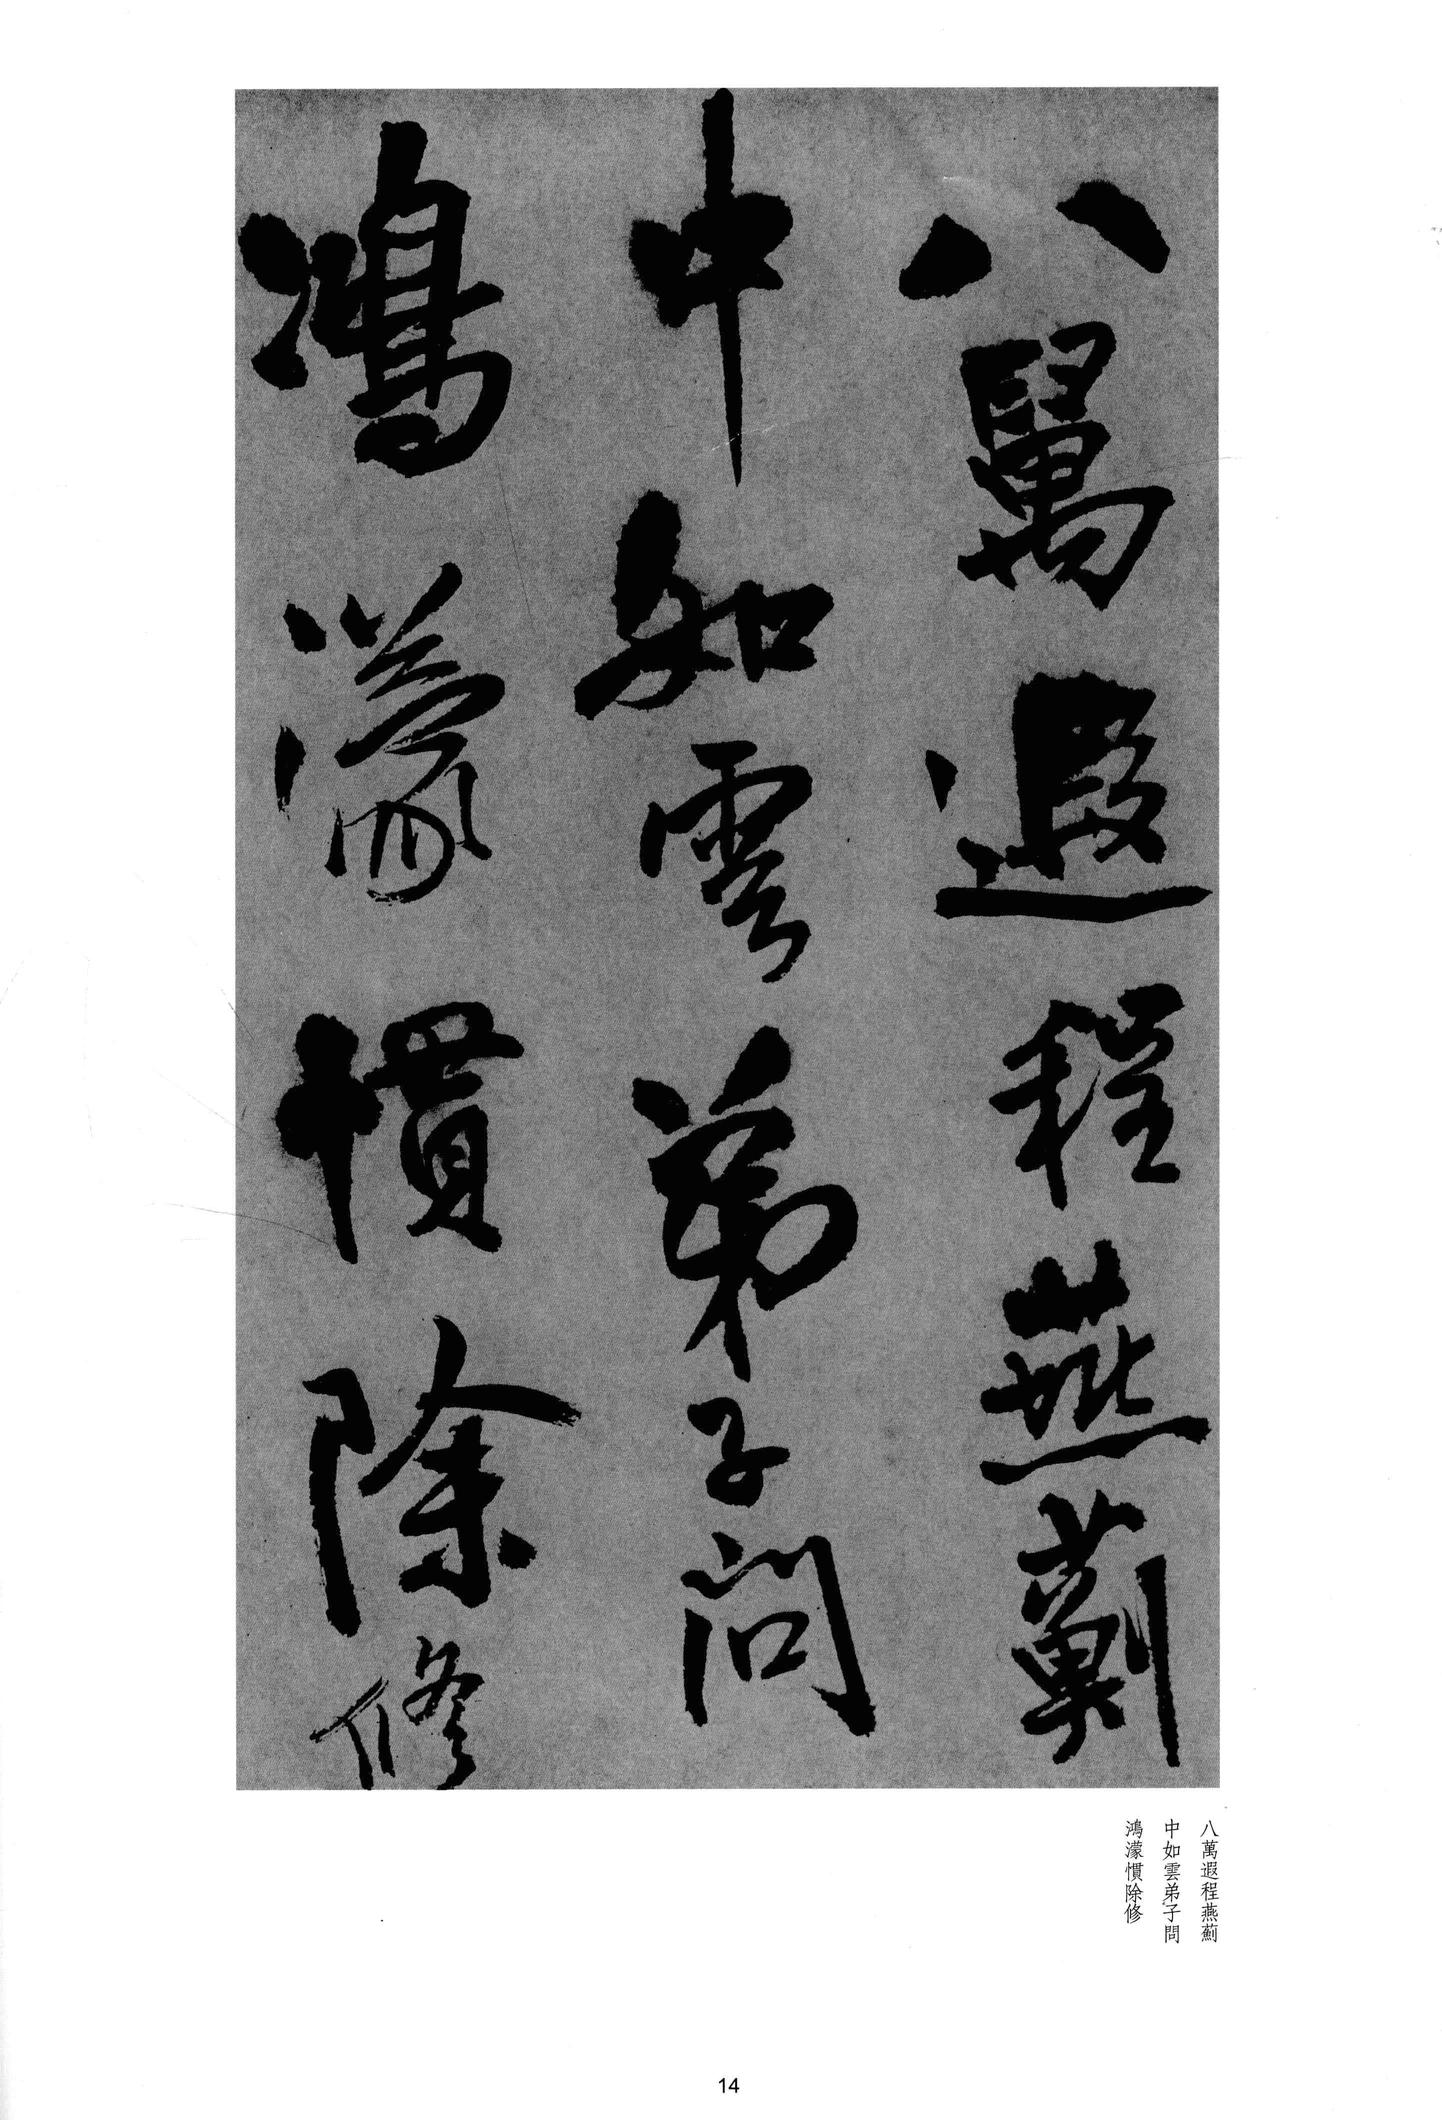 八萬遐程燕薊
中如雲弟子問
鴻濛慣除修
八萬遐程燕薊
中如雲弟子問
鴻濛慣除修
14